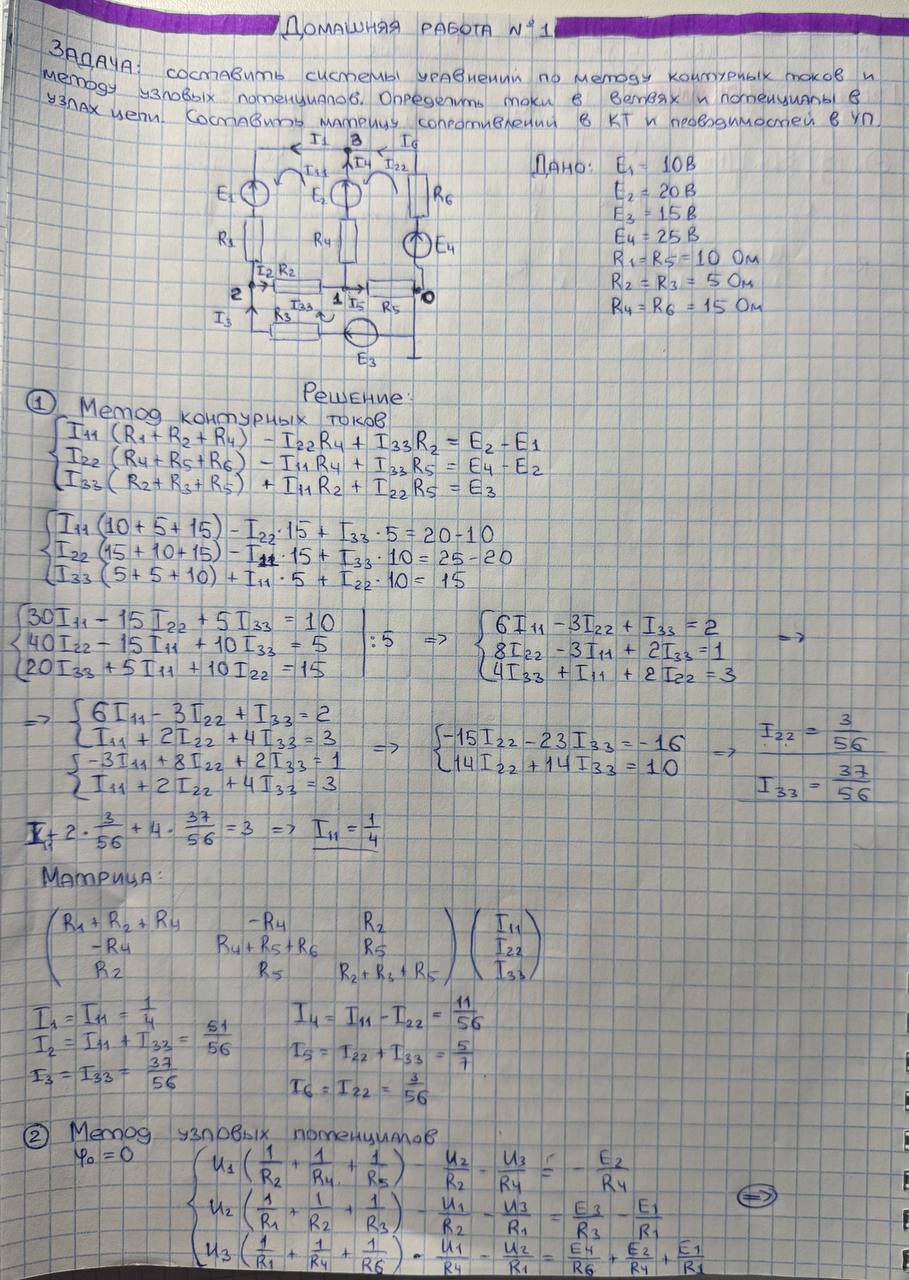 Домашняя работа №1
Задача: составить системы уравнений по методу контурных токов и
методу узловых потенциалов. Определить токи в ветвях и потенциалы в
узлах цепи. Составить матрицу сопротивлений в КТ и проводимостей в УП.
I1 3 I6
I11 I4 I22
E1 E2 R6
R1 R4 E4
I2 R2
2 1 I5 0
I3 R3 I33 R5
E3
Дано: E1 = 10В
E2 = 20В
E3 = 15В
E4 = 25В
R1 = R5 = 10 Ом
R2 = R3 = 5 Ом
R4 = R6 = 15 Ом
Решение:
① Метод контурных токов
I11 (R1 + R2 + R4) - I22R4 + I33R2 = E2 - E1
I22 (R4 + R5 + R6) - I11R4 + I33R5 = E4 - E2
I33 (R2 + R3 + R5) + I11R2 + I22R5 = E3
I11 (10 + 5 + 15) - I22·15 + I33·5 = 20 - 10
I22 (15 + 10 + 15) - I11·15 + I33·10 = 25 - 20
I33 (5 + 5 + 10) + I11·5 + I22·10 = 15
30I11 - 15I22 + 5I33 = 10
40I22 - 15I11 + 10I33 = 5 | :5 =>
20I33 + 5I11 + 10I22 = 15
6I11 - 3I22 + I33 = 2 =>
8I22 - 3I11 + 2I33 = 1
4I33 + I11 + 2I22 = 3
=> 6I11 - 3I22 + I33 = 2
I11 + 2I22 + 4I33 = 3 =>
-3I11 + 8I22 + 2I33 = 1
I11 + 2I22 + 4I33 = 3
-15I22 - 23I33 = -16 =>
14I22 + 14I33 = 10
I22 = 3/56
I33 = 37/56
I11 + 2 · 3/56 + 4 · 37/56 = 3 => I11 = 1/4
Матрица:
R1 + R2 + R4 -R4 R2 I11
-R4 R4 + R5 + R6 R5 I22
R2 R5 R2 + R3 + R5 I33
I1 = I11 = 1/4
I2 = I11 + I33 = 51/56
I3 = I33 = 37/56
I4 = I11 - I22 = 11/56
I5 = I22 + I33 = 5/7
I6 = I22 = 3/56
② Метод узловых потенциалов
φ0 = 0
U1 (1/R2 + 1/R4 + 1/R5) - U2/R2 - U3/R4 = - E2/R4
U2 (1/R1 + 1/R2 + 1/R3) - U1/R2 - U3/R1 = E3/R3 - E1/R1 =>
U3 (1/R1 + 1/R4 + 1/R6) - U1/R4 - U2/R1 = E4/R6 + E2/R4 + E1/R1